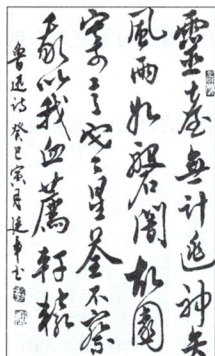 靈臺無計逃神矢
風雨如磐闇故園
寄意寒星荃不察
我以我血薦軒轅
魯迅詩 癸巳寅月